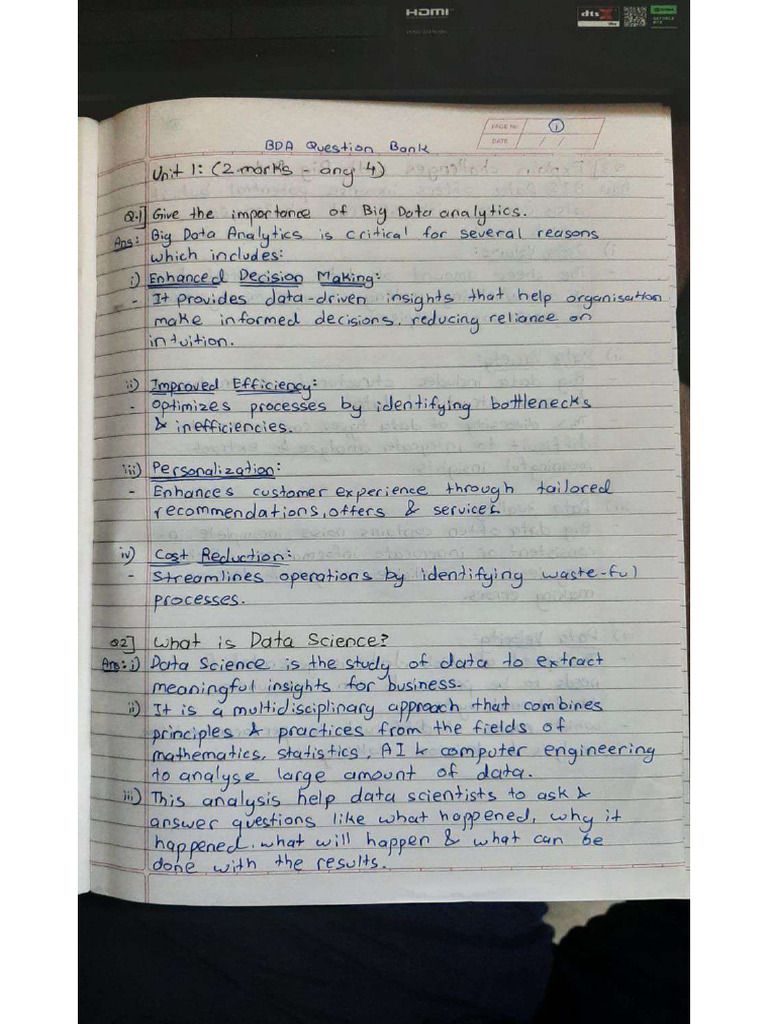 HDMI
dts X
PAGE No. 1
DATE / /
BDA Question Bank
Unit 1: (2 marks - any 4)
Q.1] Give the importance of Big Data analytics.
Ans: Big Data Analytics is critical for several reasons
which includes:
i) Enhanced Decision Making:
- It provides data-driven insights that help organisation
make informed decisions, reducing reliance on
intuition.
ii) Improved Efficiency:
- Optimizes processes by identifying bottlenecks
& inefficiencies.
iii) Personalization:
- Enhances customer experience through tailored
recommendations, offers & services.
iv) Cost Reduction:
- Streamlines operations by identifying waste-ful
processes.
Q2] What is Data Science?
Ans: i) Data Science is the study of data to extract
meaningful insights for business.
ii) It is a multidisciplinary approach that combines
principles & practices from the fields of
mathematics, statistics, AI & computer engineering
to analyse large amount of data.
iii) This analysis help data scientists to ask &
answer questions like what happened, why it
happened, what will happen & what can be
done with the results.